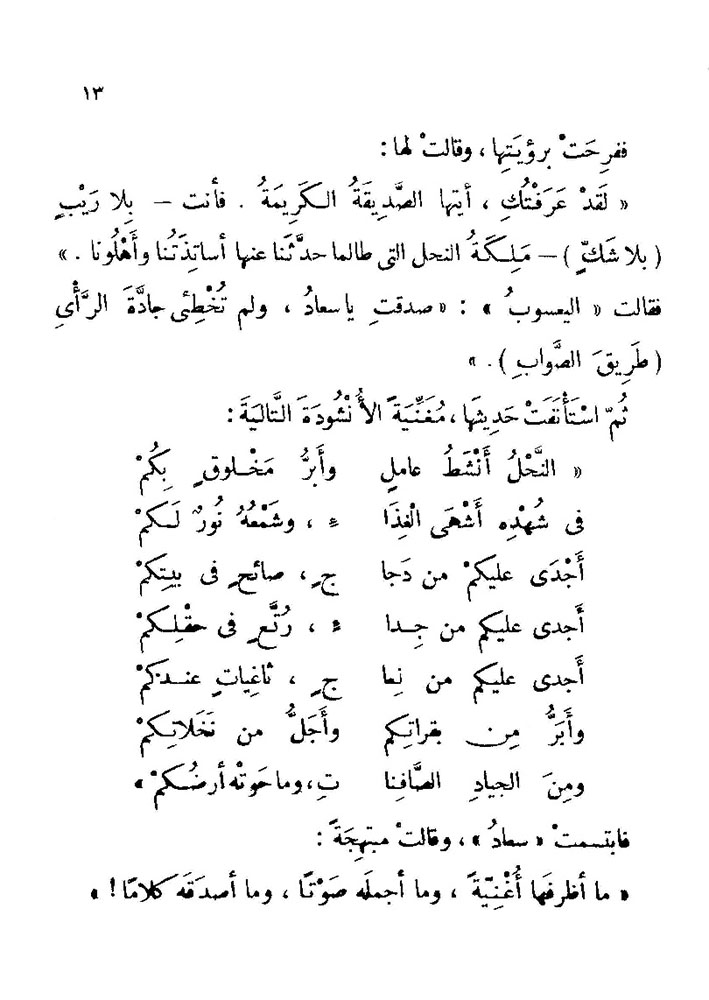 ١٣
ففرِحَتْ برؤيَتِها ، وقالتْ لها :
« لَقَدْ عَرَفْتُكِ ، أيتها الصَّدِيقَةُ الكَرِيمَةُ . فأنت – بِلا رَيْبٍ
( بلا شَكٍّ ) – مَلِكَةُ النحل التى طالما حدَّثَنا عنها أساتِذَتُنا وأَهْلُونا . »
فقالت « اليعسوبُ » : « صدقتِ يا سعادُ ، ولم تُخْطِئى جادَّةَ الرَّأْىِ
( طَرِيقَ الصَّوابِ ) . »
ثُمّ اسْتَأْنَفَتْ حَدِيثَها ، مُغَنِّيَةً الأُنْشُودَةَ التَّالِيَةَ :
« النَّحْلُ أَنْشَطُ عاملٍ وأَبَرُّ مَخْلوقٍ بِكُمْ
فى شُهْدِهِ أَشْهَى الْغِذَا ءِ ، وشَمْعُهُ نُورٌ لَكمْ
أَجْدَى عليكمْ من دَجا جٍ ، صائحٍ فى بيتِكمْ
أَجدى عليكم من جِدا ءٍ ، رُتَّعٍ فى حقْلِكمْ
أَجدى عليكم من نِعا جٍ ، ثاغِياتٍ عندكمْ
وأَبَرُّ مِن بقراتِكم وأَجَلُّ من نَخَلاتِكمْ
ومِنَ الجيادِ الصَّافِنا تِ ، وما حَوتْه أرضُكمْ »
فابتسمتْ « سعادُ » ، وقالتْ مبتهِجَةً :
« ما أظرفَها أُغْنِيّةً ، وما أجملَه صَوْتًا ، وما أصدَقَه كلامًا ! »